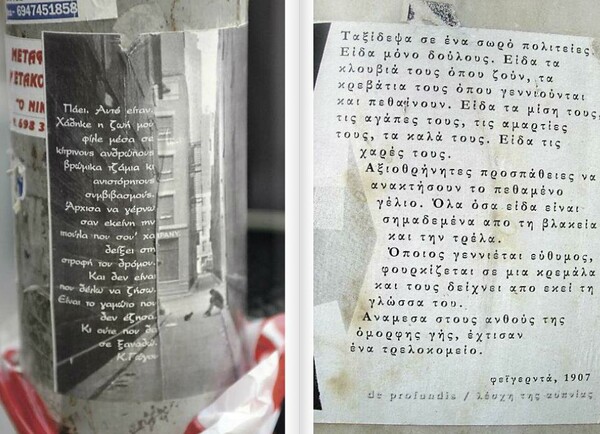 6947451858
ΜΕΤΑΦ
698 3
Πάει. Αυτό είταν.
Χάθηκε η ζωή μου
φίλε μέσα σε
κίτρινους ανθρώπους
βρώμικα τζάμια κι
ανιστόρητους
συμβιβασμούς.
Άρχισα να γέρνω
σαν εκείνη την
ιτούλα που σου'χα
δείξει στη
στροφή του δρόμου.
Και δεν είναι
που θέλω να ζήσω.
Είναι το γαμώτο που
δεν έζησα.
Κι ούτε που θα
σε ξαναδώ.
Κ.Γώγου
PANY
Ταξίδεψα σε ένα σωρό πολιτείες
Είδα μόνο δούλους. Είδα τα
κλουβιά τους όπου ζουν, τα
κρεβάτια τους όπου γεννιούνται
και πεθαίνουν. Είδα τα μίση τους,
τις αγάπες τους, τις αμαρτίες
τους, τα καλά τους. Είδα τις
χαρές τους.
Αξιοθρήνητες προσπάθειες να
ανακτήσουν το πεθαμένο
γέλιο. Όλα όσα είδα είναι
σημαδεμένα απο τη βλακεία
και την τρέλα.
Όποιος γεννιέται εύθυμος,
φουρκίζεται σε μια κρεμάλα
και τους δείχνει απο εκεί τη
γλώσσα του.
Αναμεσα στους ανθούς της
όμορφης γής, έχτισαν
ένα τρελοκομείο.
φεϊγερντά, 1907
de profundis / λέσχη της αϋπνίας